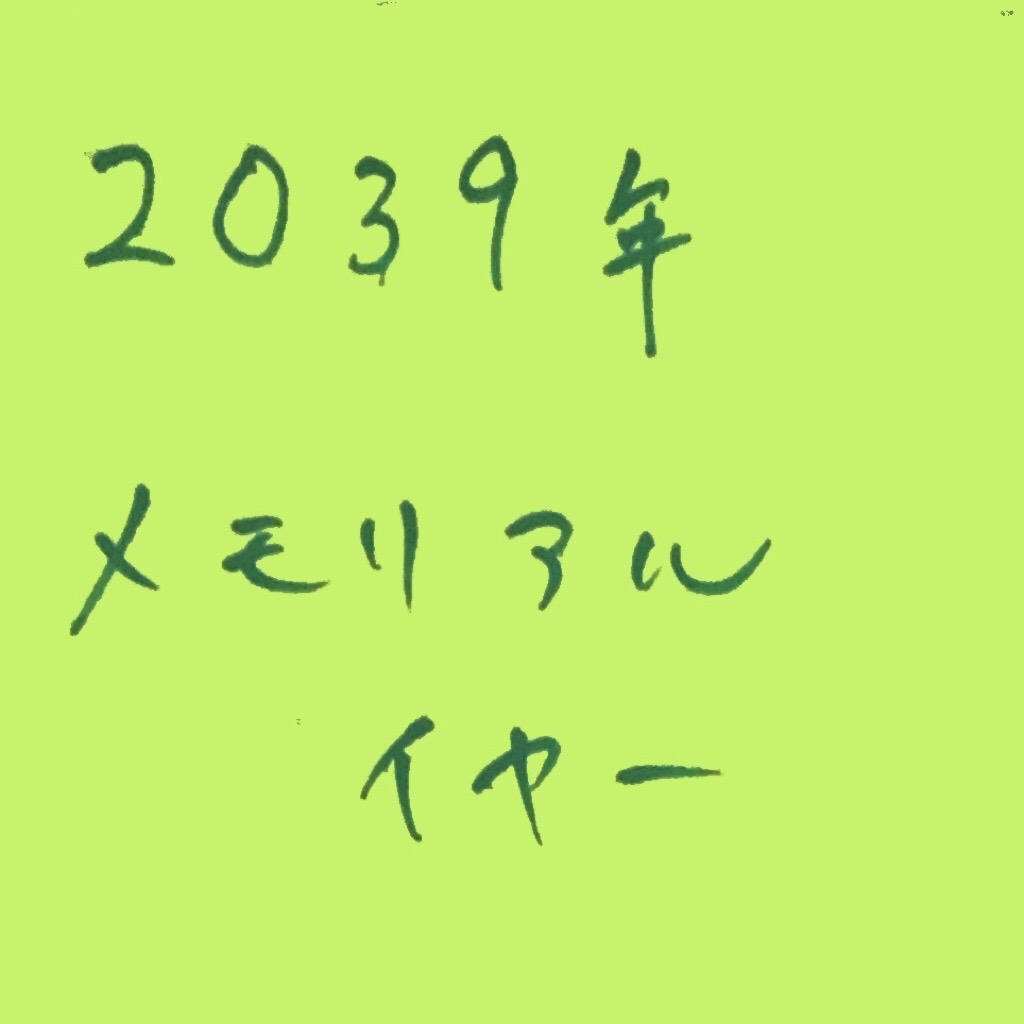 2039年
メモリアル
イヤー